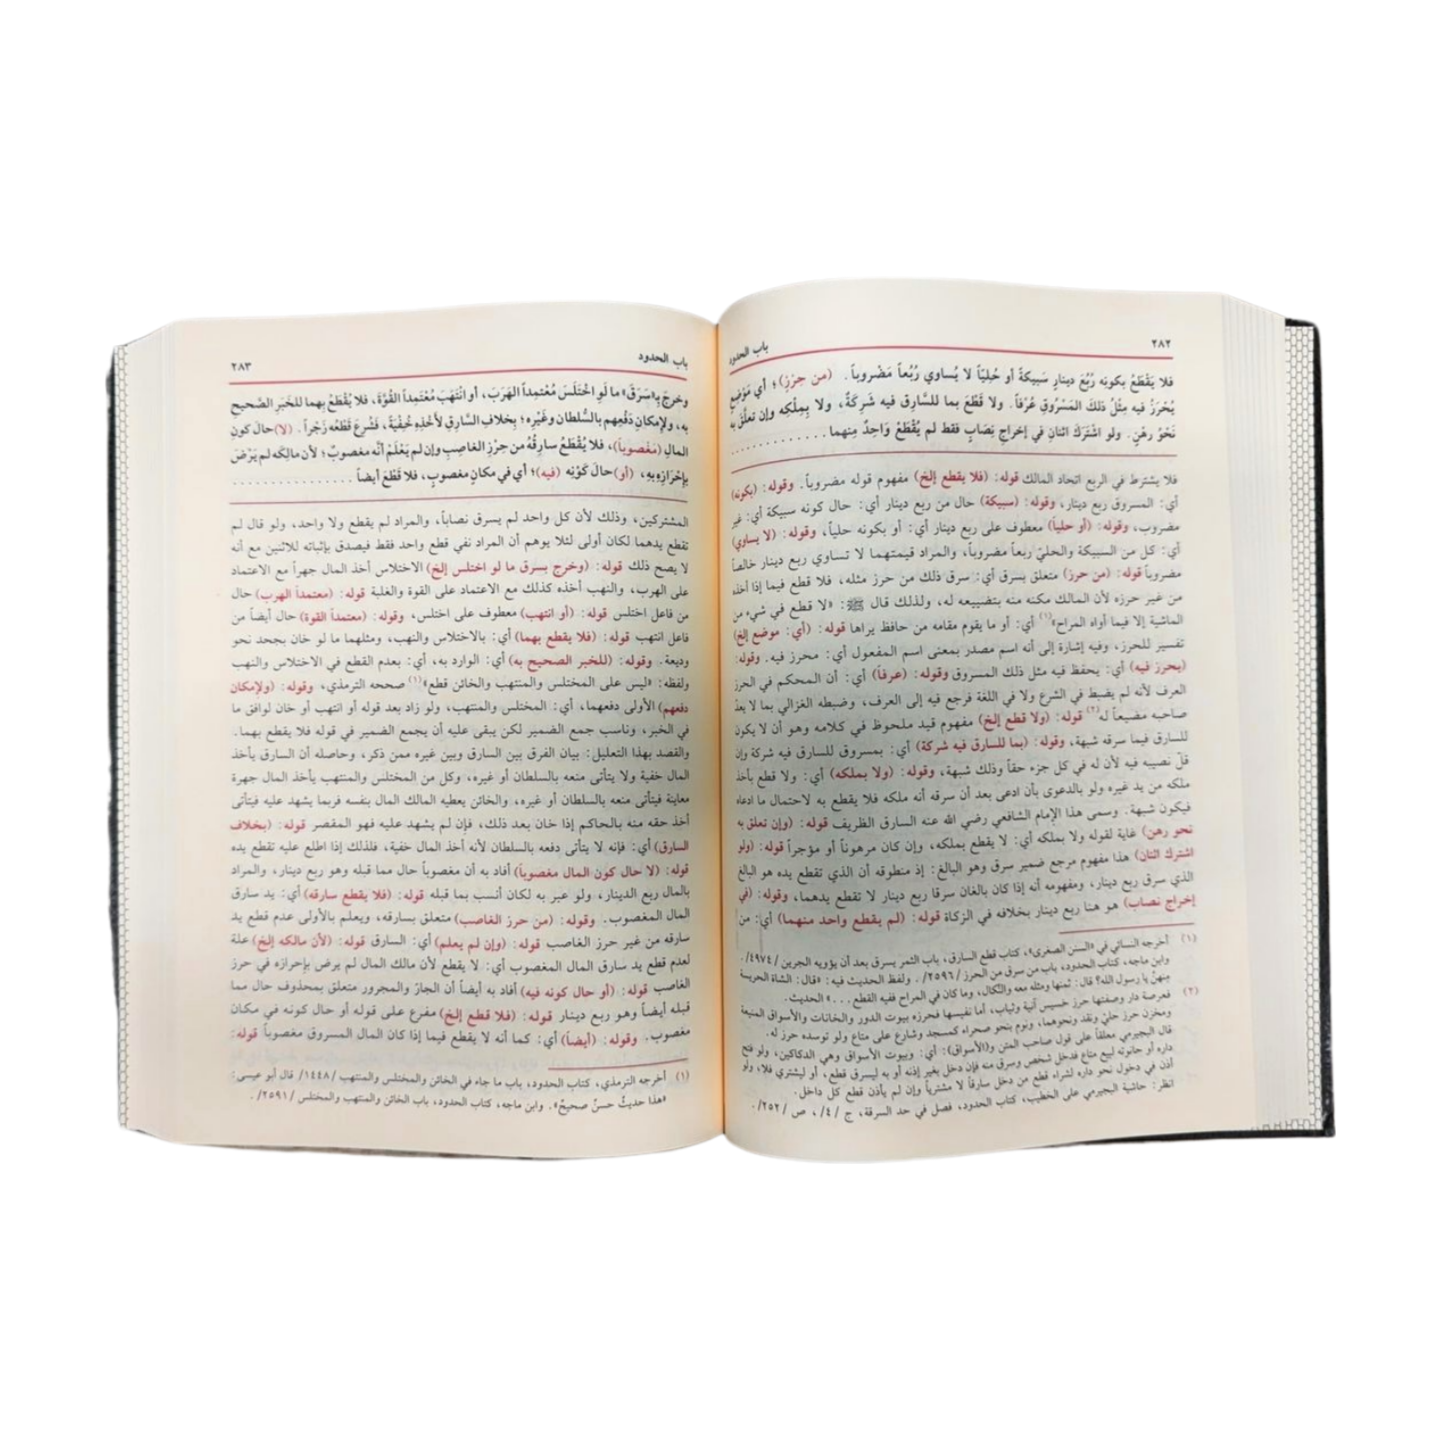 ٢٨٢
باب الحدود
فلا يَقْطَعُ بكونِه رُبُعَ دينارٍ سَبِيكةً أو حُلِيّاً لا يُساوي رُبُعاً مَضْروباً. (من حِرْزِ)؛ أي مَوْضِعٍ
يُحْرَزُ فيه مِثْلُ ذلك المَسْرُوقِ عُرْفاً. ولا قَطْعَ بما للسَّارِق فيه شَرِكَةٌ، ولا بِمِلْكِه وإن تعلَّقَ به
نَحْوُ رهْنٍ. ولو اشْتَرَكَ اثنانِ في إخراجِ نِصَابٍ فقط لم يُقْطَعْ وَاحِدٌ منهما . . . . . . . . . . . . .
فلا يشترط في الربع اتحاد المالك قوله: (فلا يقطع إلخ) مفهوم قوله مضروباً. وقوله: (بكونه)
أي: المسروق ربع دينار، وقوله: (سبيكة) حال من ربع دينار أي: حال كونه سبيكة أي: غير
مضروب، وقوله: (أو حلياً) معطوف على ربع دينار أي: أو بكونه حلياً، وقوله: (لا يساوي)
أي: كل من السبيكة والحليّ ربعاً مضروباً، والمراد قيمتهما لا تساوي ربع دينار خالصاً
مضروباً قوله: (من حرز) متعلق بسرق أي: سرق ذلك من حرز مثله، فلا قطع فيما إذا أخذه
من غير حرزه لأن المالك مكنه منه بتضييعه له، ولذلك قال ﷺ: «لا قطع في شيء من
الماشية إلا فيما أواه المراح»(١) أي: أو ما يقوم مقامه من حافظ يراها قوله: (أي: موضع إلخ)
تفسير للحرز، وفيه إشارة إلى أنه اسم مصدر بمعنى اسم المفعول أي: محرز فيه. وقوله:
(يحرز فيه) أي: يحفظ فيه مثل ذلك المسروق وقوله: (عرفاً) أي: أن المحكم في الحرز
العرف لأنه لم يضبط في الشرع ولا في اللغة فرجع فيه إلى العرف، وضبطه الغزالي بما لا يعد
صاحبه مضيعاً له(٢) قوله: (ولا قطع إلخ) مفهوم قيد ملحوظ في كلامه وهو أن لا يكون
للسارق فيما سرقه شبهة، وقوله: (بما للسارق فيه شركة) أي: بمسروق للسارق فيه شركة وإن
قلّ نصيبه فيه لأن له في كل جزء حقاً وذلك شبهة، وقوله: (ولا بملكه) أي: ولا قطع بأخذ
ملكه من يد غيره ولو بالدعوى بأن ادعى بعد أن سرقه أنه ملكه فلا يقطع به لاحتمال ما ادعاه
فيكون شبهة. وسمى هذا الإمام الشافعي رضي الله عنه السارق الظريف قوله: (وإن تعلق به
نحو رهن) غاية لقوله ولا بملكه أي: لا يقطع بملكه، وإن كان مرهوناً أو مؤجراً قوله: (ولو
اشترك اثنان) هذا مفهوم مرجع ضمير سرق وهو البالغ: إذ منطوقه أن الذي تقطع يده هو البالغ
الذي سرق ربع دينار، ومفهومه أنه إذا كان بالغان سرقا ربع دينار لا تقطع يدهما، وقوله: (في
إخراج نصاب) هو هنا ربع دينار بخلافه في الزكاة قوله: (لم يقطع واحد منهما) أي: من
(١) أخرجه النسائي في «السنن الصغرى»، كتاب قطع السارق، باب الثمر يسرق بعد أن يؤويه الجرين /٤٩٧٤/.
وابن ماجه، كتاب الحدود، باب من سرق من الحرز /٢٥٩٦/. ولفظ الحديث فيه: «قال: الشاة الحريسة
منهنّ يا رسول الله؟ قال: ثمنها ومثله معه والنّكال، وما كان في المراح ففيه القطع . . .» الحديث.
(٢) فعرصة دار وصفتها حرز خسيس آنية وثياب، أما نفيسها فحرزه بيوت الدور والخانات والأسواق المنيعة
ومخزن حرز حليّ ونقد ونحوهما، ونوم بنحو صحراء كمسجد وشارع على متاع ولو توسده حرز له.
قال البجيرمي معلقاً على قول صاحب المتن و(الأسواق): أي: وبيوت الأسواق وهي الدكاكين، ولو فتح
داره أو حانوته لبيع متاع فدخل شخص وسرق منه فإن دخل بغير إذنه أو به ليسرق قطع، أو ليشتري فلا، ولو
أذن في دخول نحو داره لشراء قطع من دخل سارقاً لا مشترياً وإن لم يأذن قطع كل داخل.
انظر: حاشية البجيرمي على الخطيب، كتاب الحدود، فصل في حد السرقة، ج /٤/، ص /٢٥٢/.
باب الحدود
٢٨٣
وخرجَ بِـ«سَرَقَ» ما لَو اخْتَلَسَ مُعْتمِداً الهَرَبَ، أو انْتَهَبَ مُعْتَمِداً القُوَّةَ، فلا يُقْطَعُ بهما للخَبَرِ الصَّحيحِ
به، ولإمكانِ دَفْعِهم بالسُّلطان وغَيْرِه؛ بخلافِ السَّارِقِ لأَخْذِهِ خُفْيَةً، فشُرِعَ قَطْعُه زَجْراً. (لا) حالَ كونِ
المالِ (مَغْصوباً)، فلا يُقْطَعُ سارِقُهُ من حِرْزِ الغاصِبِ وإن لم يَعْلَمْ أنَّه مغصوبٌ؛ لأن مالِكَه لم يَرْضَ
بإحْرَازِه بهِ، (أو) حالَ كَوْنِه (فيه)؛ أي في مكانٍ مغصوبٍ، فلا قَطْعَ أيضاً . . . . . . . . . . . . . . .
المشتركين، وذلك لأن كل واحد لم يسرق نصاباً، والمراد لم يقطع ولا واحد، ولو قال لم
تقطع يدهما لكان أولى لئلا يوهم أن المراد نفي قطع واحد فقط فيصدق بإثباته للاثنين مع أنه
لا يصح ذلك قوله: (وخرج بسرق ما لو اختلس إلخ) الاختلاس أخذ المال جهراً مع الاعتماد
على الهرب، والنهب أخذه كذلك مع الاعتماد على القوة والغلبة قوله: (معتمداً الهرب) حال
من فاعل اختلس قوله: (أو انتهب) معطوف على اختلس، وقوله: (معتمداً القوة) حال أيضاً من
فاعل انتهب قوله: (فلا يقطع بهما) أي: بالاختلاس والنهب، ومثلهما ما لو خان بجحد نحو
وديعة. وقوله: (للخبر الصحيح به) أي: الوارد به، أي: بعدم القطع في الاختلاس والنهب
ولفظه: «ليس على المختلس والمنتهب والخائن قطع»(١) صححه الترمذي، وقوله: (ولإمكان
دفعهم) الأولى دفعهما، أي: المختلس والمنتهب، ولو زاد بعد قوله أو انتهب أو خان لوافق ما
في الخبر، وناسب جمع الضمير لكن يبقى عليه أن يجمع الضمير في قوله فلا يقطع بهما.
والقصد بهذا التعليل: بيان الفرق بين السارق وبين غيره ممن ذكر، وحاصله أن السارق يأخذ
المال خفية ولا يتأتى منعه بالسلطان أو غيره، وكل من المختلس والمنتهب يأخذ المال جهرة
معاينة فيتأتى منعه بالسلطان أو غيره، والخائن يعطيه المالك المال بنفسه فربما يشهد عليه فيتأتى
أخذ حقه منه بالحاكم إذا خان بعد ذلك، فإن لم يشهد عليه فهو المقصر قوله: (بخلاف
السارق) أي: فإنه لا يتأتى دفعه بالسلطان لأنه أخذ المال خفية، فلذلك إذا اطلع عليه تقطع يده
قوله: (لا حال كون المال مغصوباً) أفاد به أن مغصوباً حال مما قبله وهو ربع دينار، والمراد
بالمال ربع الدينار، ولو عبر به لكان أنسب بما قبله قوله: (فلا يقطع سارقه) أي: يد سارق
المال المغصوب. وقوله: (من حرز الغاصب) متعلق بسارقه، ويعلم بالأولى عدم قطع يد
سارقه من غير حرز الغاصب قوله: (وإن لم يعلم) أي: السارق قوله: (لأن مالكه إلخ) علة
لعدم قطع يد سارق المال المغصوب أي: لا يقطع لأن مالك المال لم يرض بإحرازه في حرز
الغاصب قوله: (أو حال كونه فيه) أفاد به أيضاً أن الجارّ والمجرور متعلق بمحذوف حال مما
قبله أيضاً وهو ربع دينار قوله: (فلا قطع إلخ) مفرع على قوله أو حال كونه في مكان
مغصوب. وقوله: (أيضاً) أي: كما أنه لا يقطع فيما إذا كان المال المسروق مغصوباً قوله:
(١) أخرجه الترمذي، كتاب الحدود، باب ما جاء في الخائن والمختلس والمنتهب /١٤٤٨/ قال أبو عيسى:
«هذا حديثٌ حسنٌ صحيحٌ». وابن ماجه، كتاب الحدود، باب الخائن والمنتهب والمختلس /٢٥٩١/.